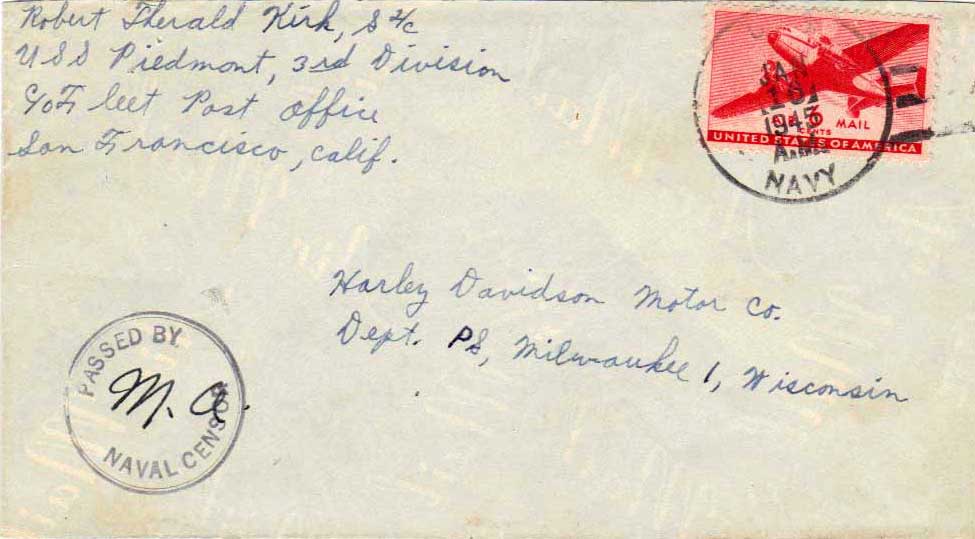 Robert Therald Kirk, S 2/c
USS Piedmont, 3rd Division
c/o Fleet Post Office
San Francisco, Calif.
JAN
1945
A.M.
NAVY
AIR MAIL
CENTS
UNITED STATES OF AMERICA
Harley Davidson Motor Co.
Dept. PS, Milwaukee 1, Wisconsin
PASSED BY
M. A.
NAVAL CENSOR